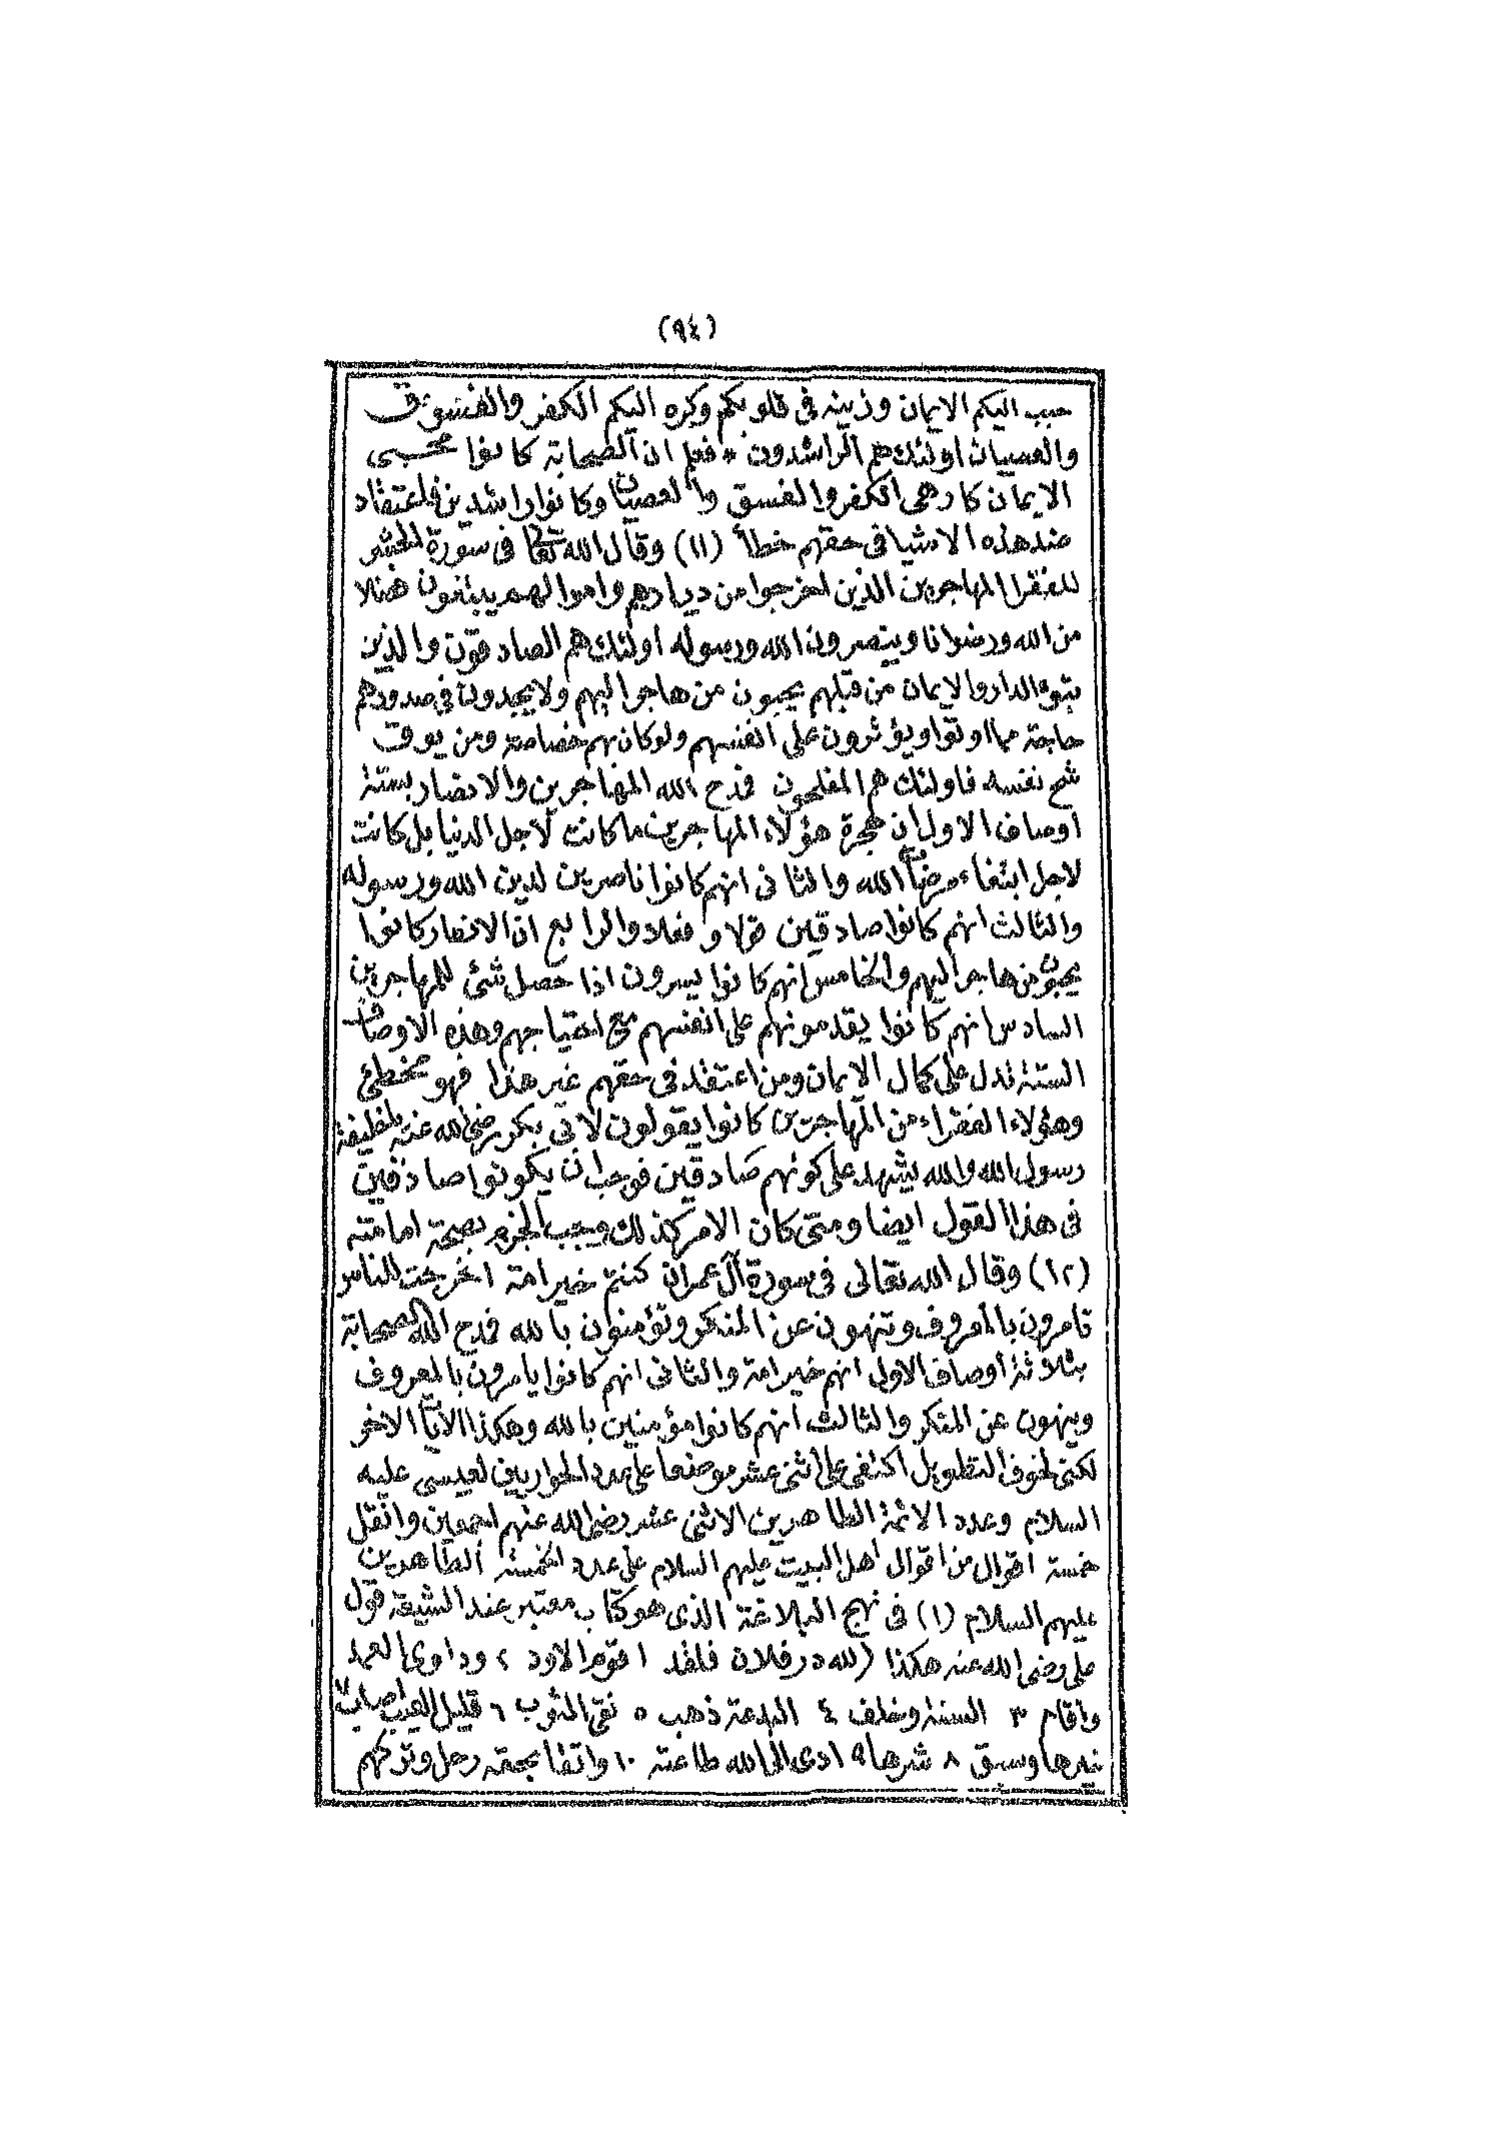 (٩٤)
حبب اليكم الايمان وزينه فى قلوبكم وكره اليكم الكفر والفسوق
والعصيان اولئك هم الراشدون * فعلم ان الصحابة كانوا محبى
الايمان كارهى الكفر والفسق والعصيان وكانوا راشدين فاعتقاد
ضد هذه الاشيا فى حقهم خطأ (١١) وقال الله تعالى فى سورة الحشر
للفقرا المهاجرين الذين اخرجوا من ديارهم واموالهم يبتغون فضلا
من الله ورضوانا وينصرون الله ورسوله اولئك هم الصادقون والذين
تبوء الدار والايمان من قبلهم يحبون من هاجر اليهم ولا يجدون فى صدورهم
حاجة مما اوتوا ويؤثرون على انفسهم ولو كان بهم خصاصة ومن يوق
شح نفسه فاولئك هم المفلحون فمدح الله المهاجرين والانصار بستة
اوصاف الاول ان هجرة هؤلاء المهاجرين ما كانت لاجل الدنيا بل كانت
لاجل ابتغاء مرضات الله والثانى انهم كانوا ناصرين لدين الله ورسوله
والثالث انهم كانوا صادقين قولا وفعلا والرابع ان الانصار كانوا
يحبون من هاجر اليهم والخامس انهم كانوا يسرون اذا حصل شئ للمهاجرين
السادس انهم كانوا يقدمونهم على انفسهم مع احتياجهم وهذه الاوصاف
الستة تدل على كمال الايمان ومن اعتقد فى حقهم غير هذا فهو مخطئ
وهؤلاء الفقراء من المهاجرين كانوا يقولون لابى بكر رضى الله عنه يا خليفة
رسول الله والله يشهد على كونهم صادقين فوجب ان يكونوا صادقين
فى هذا القول ايضا ومتى كان الامر كذلك وجب الجزم بصحة امامته
(١٢) وقال الله تعالى فى سورة آل عمران كنتم خير امة اخرجت للناس
تامرون بالمعروف وتنهون عن المنكر وتؤمنون بالله فمدح الله الصحابة
بثلاثة اوصاف الاول انهم خير امة والثانى انهم كانوا يامرون بالمعروف
وينهون عن المنكر والثالث انهم كانوا مؤمنين بالله وهكذا الآيات الاخر
لكنى لخوف التطويل اكتفى على اثنى عشر موضعا على عدد الحواريين لعيسى عليه
السلام وعدد الائمة الطاهرين الاثنى عشر رضى الله عنهم اجمعين وانقل
خمسة اقوال من اقوال اهل البيت عليهم السلام على عدد الخمسة الطاهرين
عليهم السلام (١) فى نهج البلاغة الذى هو كتاب معتبر عند الشيعة قول
على رضى الله عنه هكذا (لله در فلان فلقد ١ قوم الاود ٢ وداوى العمد
واقام ٣ السنة وخلف ٤ البدعة ذهب ٥ نقى الثوب ٦ قليل العيب اصاب ٧
خيرها وسبق ٨ شرها ٩ ادى الى الله طاعته ١٠ واتقا بحقه رحل وتركهم